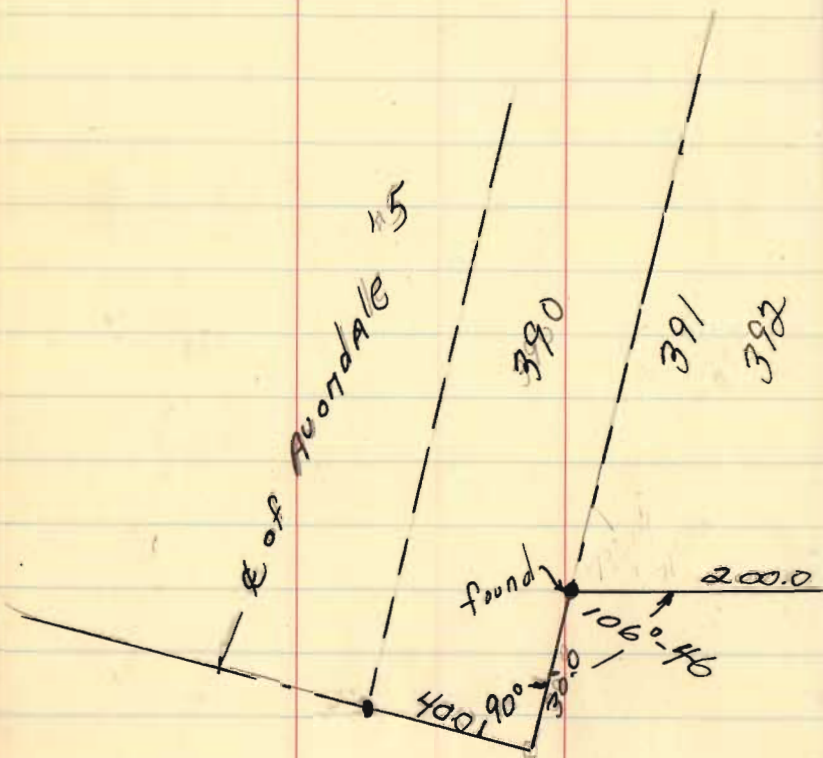 ℄ of Avondale "5
390
391
392
found
200.0
106°-46
30.0
90°
40.0